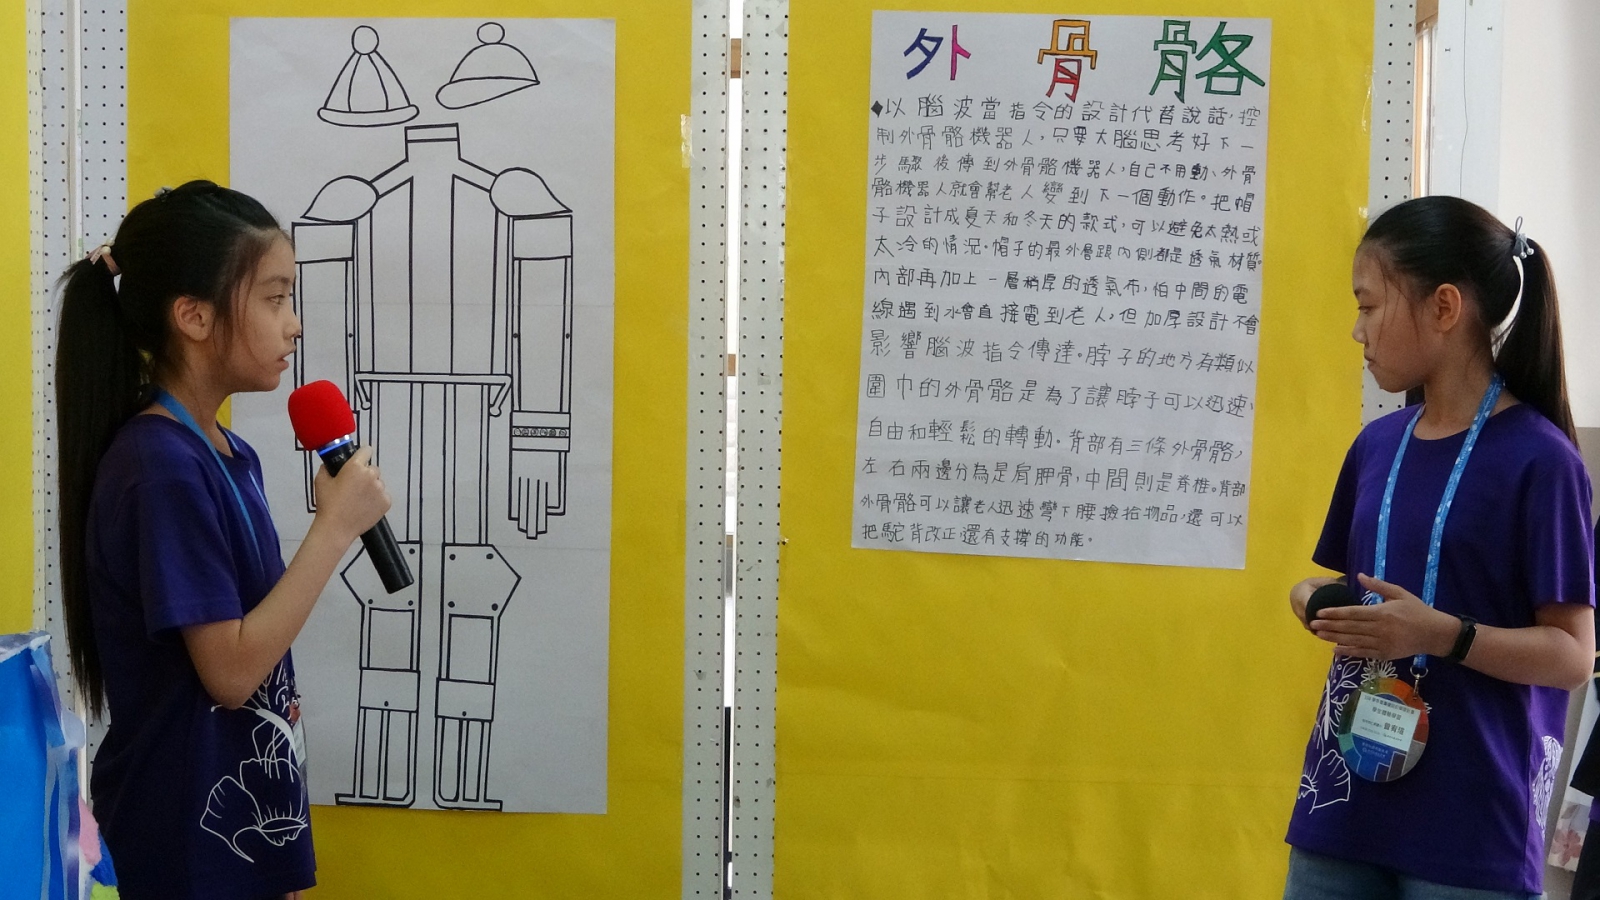 外骨骼
◆以腦波當指令的設計代替說話,控
制外骨骼機器人,只要大腦思考好下一
步驟後傳到外骨骼機器人,自己不用動、外骨
骼機器人就會幫老人變到下一個動作。把帽
子設計成夏天和冬天的款式,可以避免太熱或
太冷的情況。帽子的最外層跟內側都是透氣材質
內部再加上一層稍厚的透氣布,怕中間的電
線遇到水會直接電到老人,但加厚設計不會
影響腦波指令傳達。脖子的地方有類似
圍巾的外骨骼是為了讓脖子可以迅速、
自由和輕鬆的轉動。背部有三條外骨骼,
左右兩邊分為是肩胛骨,中間則是脊椎。背部
外骨骼可以讓老人迅速彎下腰撿拾物品,還可以
把駝背改正還有支撐的功能。